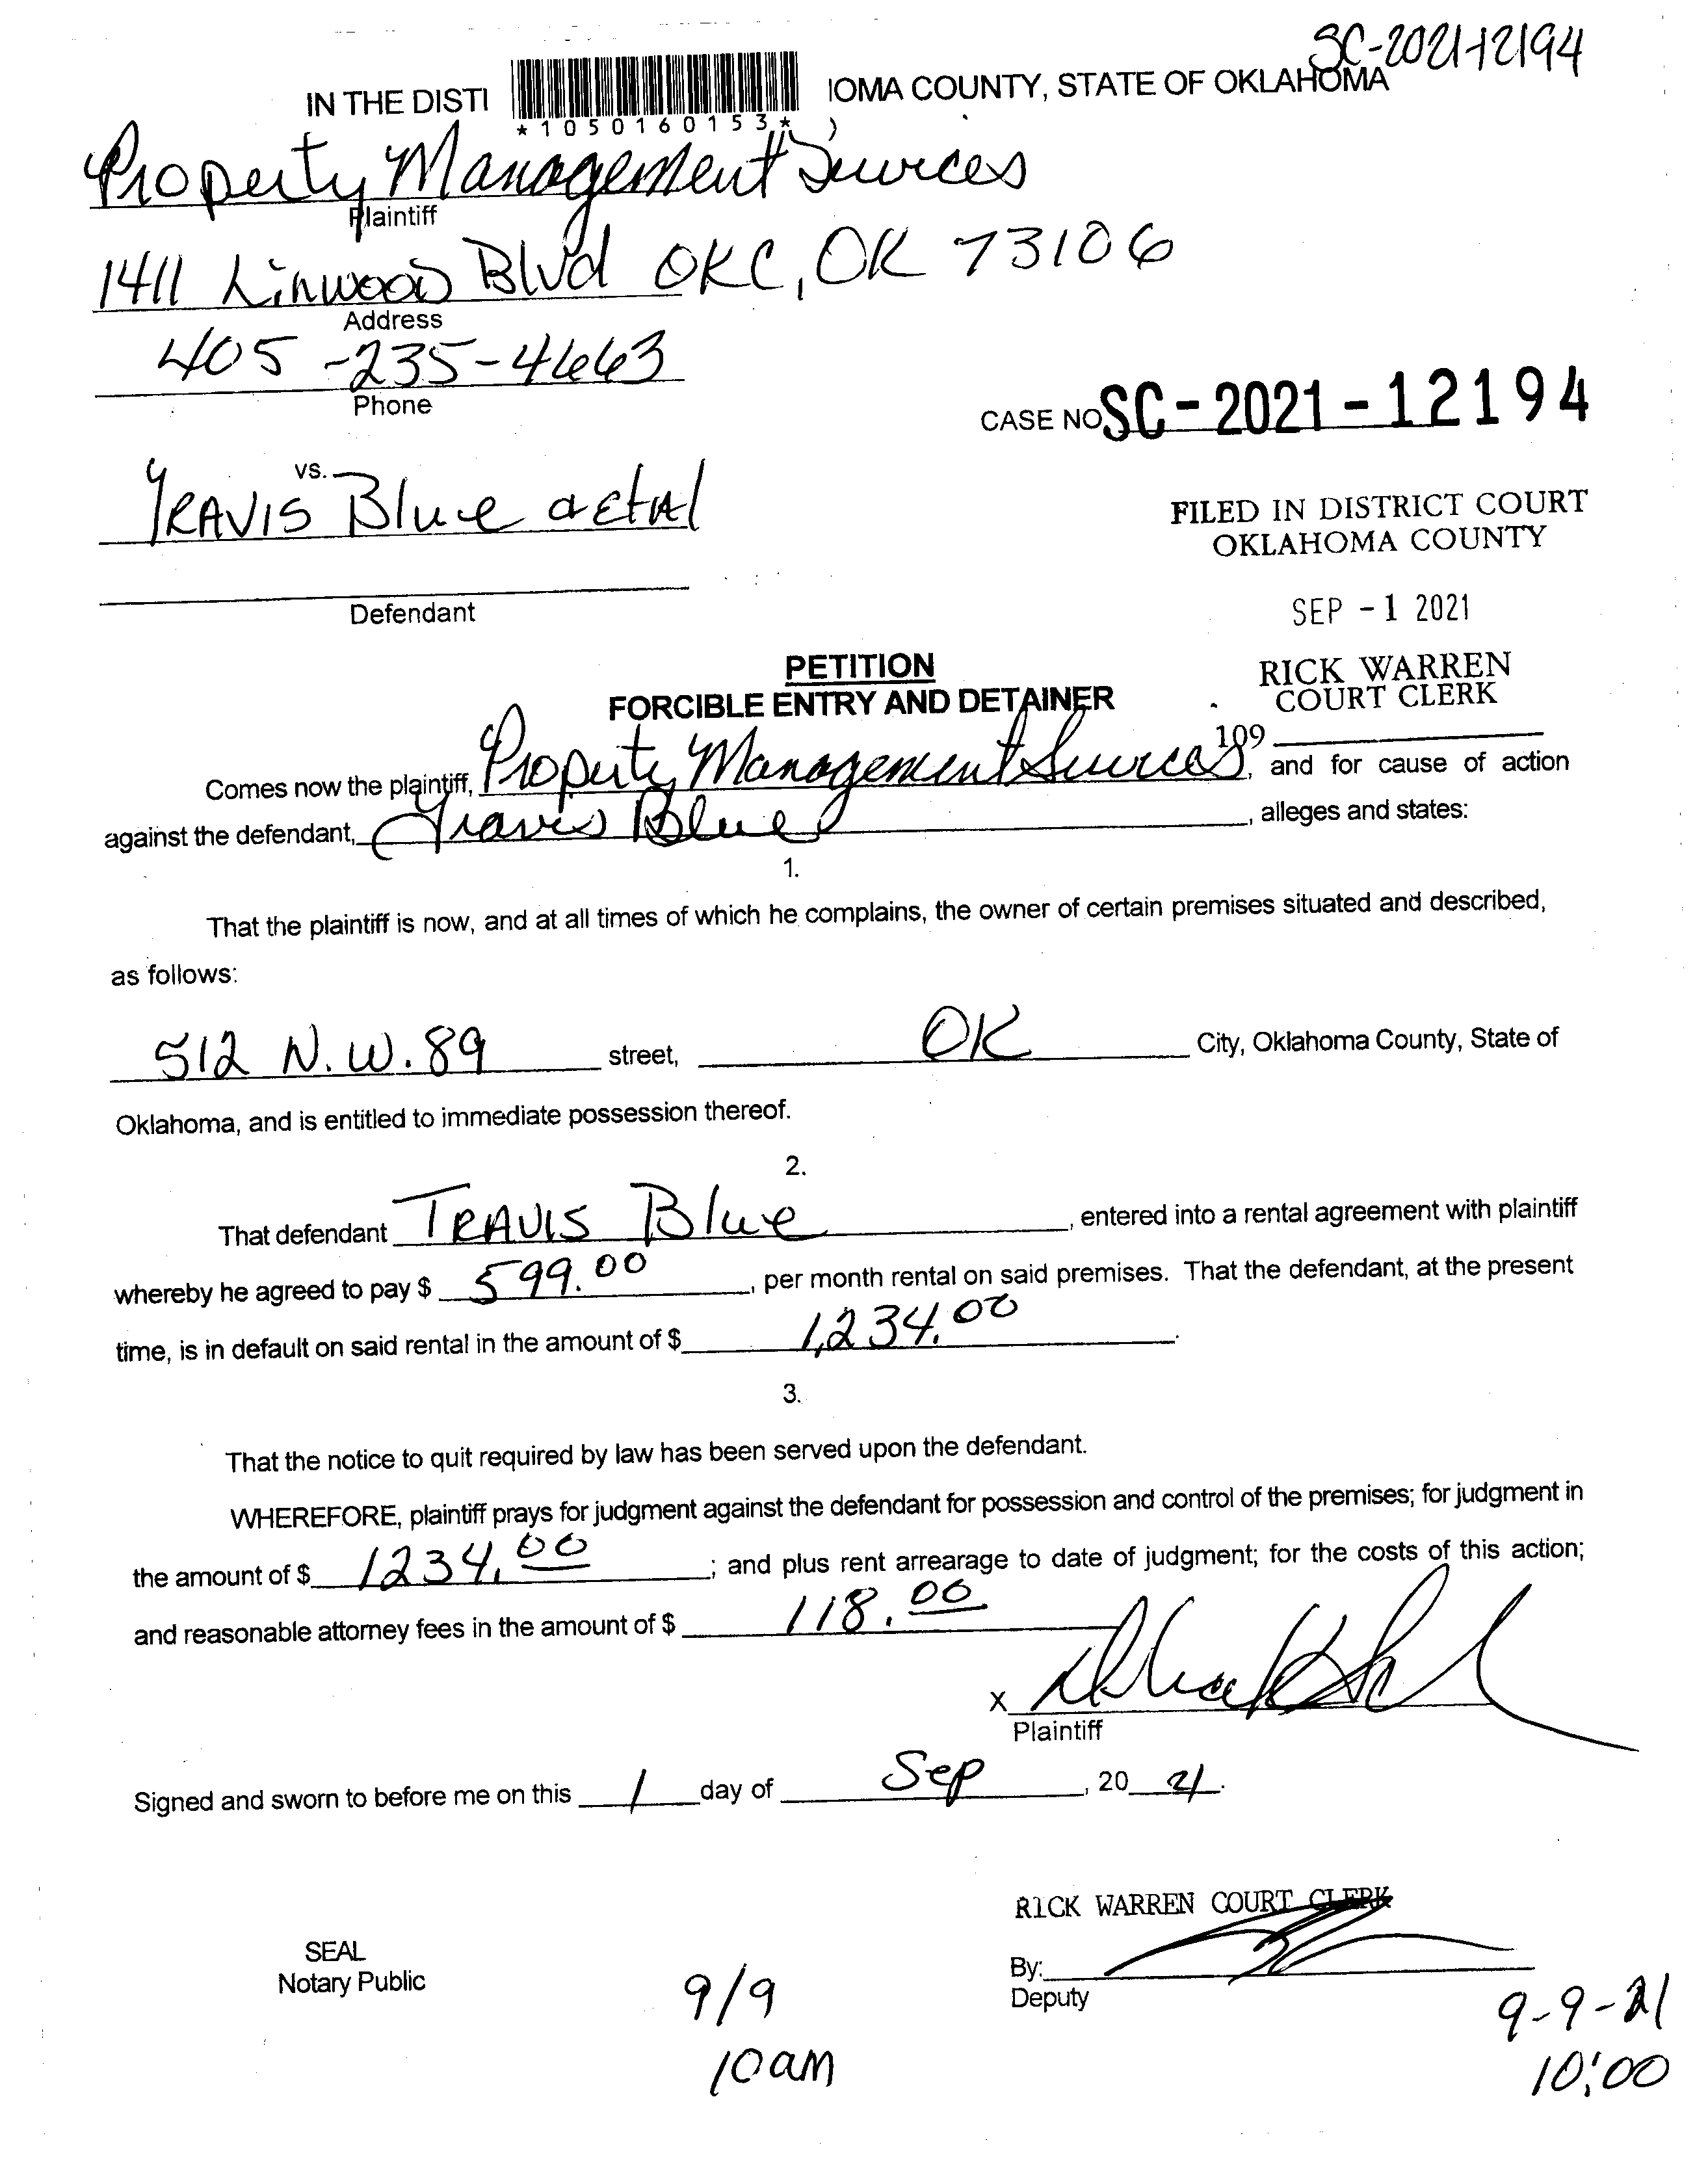 SC-2021-12194
IN THE DISTI IOMA COUNTY, STATE OF OKLAHOMA
*1050160153* )
Property Management Services
Plaintiff
1411 Linwood Blvd OKC, OK 73106
Address
405-235-4663
Phone
CASE NO SC-2021-12194
vs.
TRAVIS Blue et al
FILED IN DISTRICT COURT
OKLAHOMA COUNTY
Defendant
SEP -1 2021
PETITION
FORCIBLE ENTRY AND DETAINER
RICK WARREN
COURT CLERK
109
Comes now the plaintiff, Property Management Services, and for cause of action
against the defendant, Travis Blue, alleges and states:
1.
That the plaintiff is now, and at all times of which he complains, the owner of certain premises situated and described,
as follows:
512 N.W. 89 street, OK City, Oklahoma County, State of
Oklahoma, and is entitled to immediate possession thereof.
2.
That defendant TRAVIS Blue, entered into a rental agreement with plaintiff
whereby he agreed to pay $ 599.00, per month rental on said premises. That the defendant, at the present
time, is in default on said rental in the amount of $ 1,234.00.
3.
That the notice to quit required by law has been served upon the defendant.
WHEREFORE, plaintiff prays for judgment against the defendant for possession and control of the premises; for judgment in
the amount of $ 1234.00; and plus rent arrearage to date of judgment; for the costs of this action;
and reasonable attorney fees in the amount of $ 118.00
X
Plaintiff
Signed and sworn to before me on this 1 day of Sep, 20 21.
RICK WARREN COURT CLERK
SEAL
Notary Public
By:
Deputy
9/9
10am
9-9-21
10:00